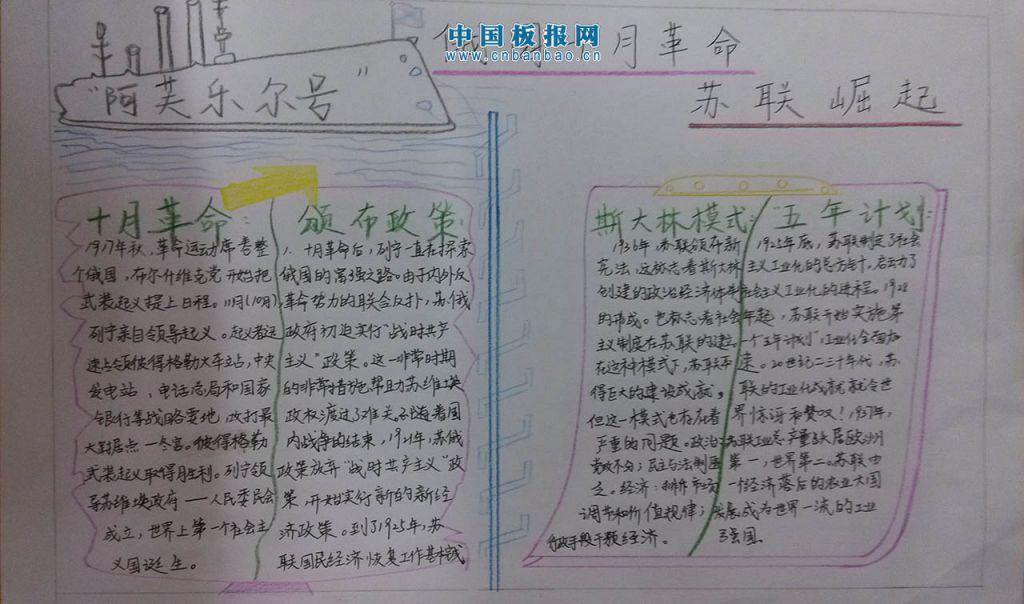 中国板报网
www.cnbanbao.cn
月革命
苏联崛起
"阿芙乐尔号"
十月革命:
1917年秋,革命运动席卷整
个俄国,布尔什维克党开始把
武装起义提上日程。11月(10月)
列宁亲自领导起义。起义者迅
速占领彼得格勒火车站,中央
发电站、电话总局和国家
银行等战略要地,攻打最
大据点—冬宫。彼得格勒
武装起义取得胜利。列宁领
导苏维埃政府——人民委员会
成立,世界上第一个社会主
义国诞生。
颁布政策:
1.十月革命后,列宁一直在探索
俄国的富强之路。由于内外反
革命势力的联合反扑,苏俄
政府初迫实行"战时共产
主义"政策。这一非常时期
的非常措施帮助苏维埃
政权渡过了难关。但随着国
内战争的结束,1921年,苏俄
政策放弃"战时共产主义"政
策,开始实行新的新经
济政策。到了1925年,苏
联国民经济恢复工作基本完成
斯大林模式:
1936年 苏联颁布新
宪法,这标志着斯大林
创建的政治经济体制
的形成。也标志着社会
主义制度在苏联的建立。
在这种模式下,苏联取
得巨大的建设成就。
但这一模式也存在着
严重的问题。政治:
党政不分;民主与法制匮
乏。经济:排斥市场
调节和价值规律;
行政手段干预经济。
"五年计划":
1925年底,苏联制定了社会
主义工业化的总方针,启动了
社会主义工业化的进程。1928
年起,苏联开始实施第
一个五年计划",工业化全面加
速。20世纪二三十年代,苏
联的工业化成就就令世
界惊讶和赞叹!1937年,
苏联工业总产量跃居欧洲
第一,世界第二。苏联由
一个经济落后的农业大国
发展成为世界一流的工业
强国。